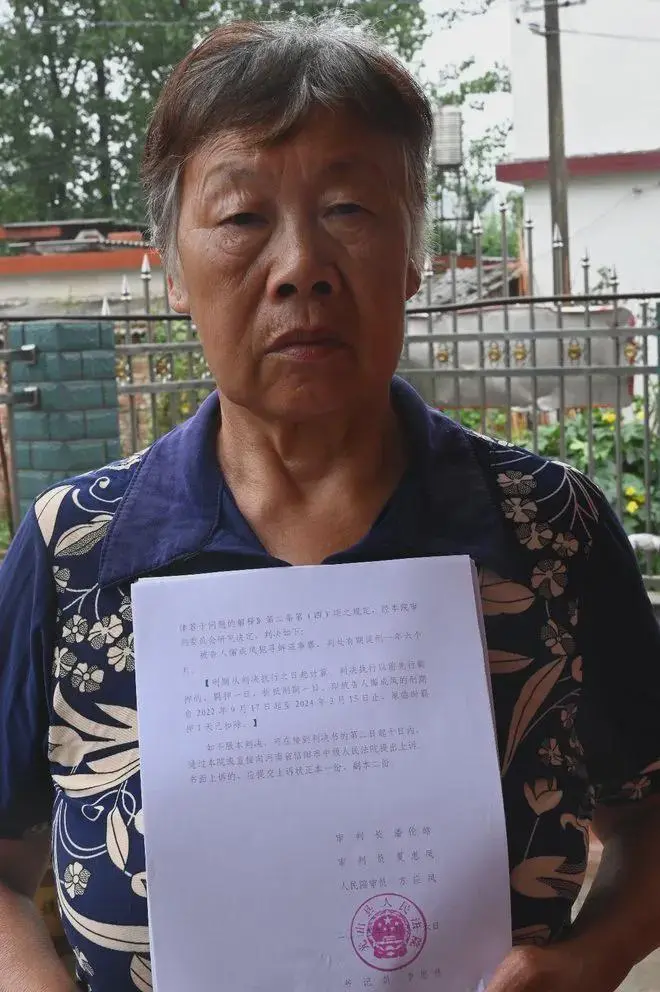 律若干问题的解释》第二条第（四）项之规定，经本院审
判委员会研究决定，判决如下：
被告人谢成凤犯寻衅滋事罪，判处有期徒刑一年六个
月。
【刑期从判决执行之日起计算。判决执行以前先行羁
押的，羁押一日，折抵刑期一日，即被告人谢成凤的刑期
自2022年9月17日起至2024年3月15日止。原临时羁
押1天已扣除。】
如不服本判决，可在接到判决书的第二日起十日内，
通过本院或直接向河南省信阳市中级人民法院提出上诉。
书面上诉的，应提交上诉状正本一份，副本二份。
审判长 潘伦
审判员 夏忠凤
人民陪审员 方应凤
光山县人民法院
书记员